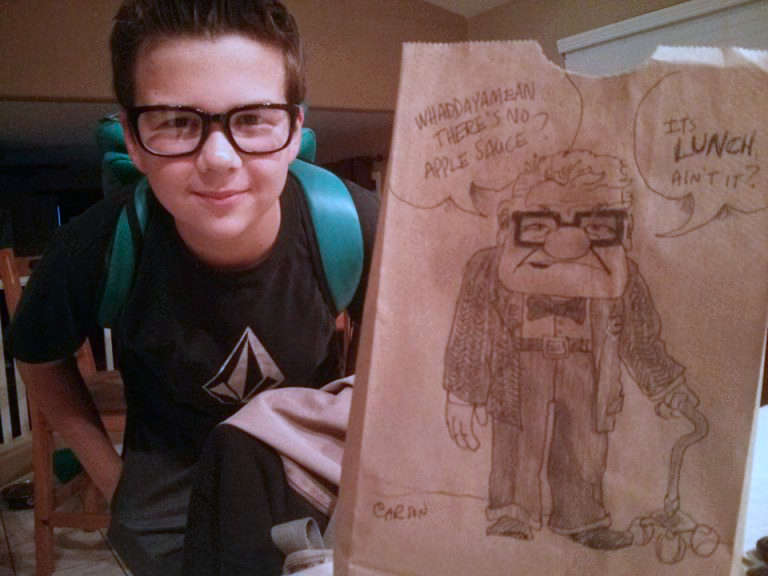 WHADDAYAMEAN
THERE'S NO
APPLE SAUCE?
ITS
LUNCH,
AIN'T IT?
CARSON